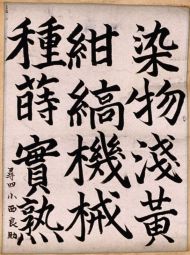 染物淺黃
紺縞機械
種蒔實熟
尋四小西良助